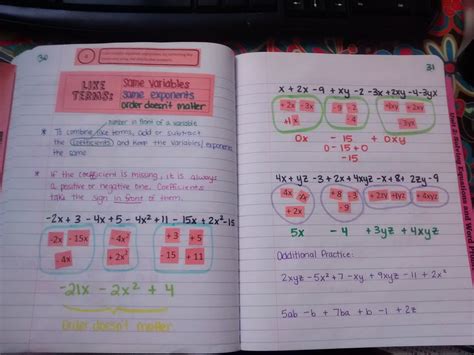 30
LIKE TERMS:
Same variables
Same exponents
Order doesn't matter
number in front of a variable
* To combine like terms, add or subtract
the coefficients and keep the variables/exponents
the same.
* If the coefficient is missing, it is always
a positive or negative one. Coefficients
take the sign in front of them.
-2x + 3 - 4x + 5 - 4x² + 11 - 15x + 2x² - 15
-2x - 15x
- 4x
- 4x²
+ 2x²
+ 3 + 5
- 15 + 11
-21x - 2x² + 4
Order doesn't matter
31
x + 2x - 9 + xy - 2 - 3x + 2xy - 4 - 3yx
+ 2x - 3x
+1x
- 9 - 2
- 4
+ 2xy
- 3yx
0x - 15 + 0xy
0 - 15 + 0
-15
4x + yz - 3 + 2x + 4xyz - x + 8 + 2zy - 9
4x
+ 2x
+ 8 - 3
+4xyz
5x - 4 + 3yz + 4xyz
Additional Practice:
2xyz - 5x² + 7 - xy + 9xyz - 11 + 2x²
5ab - b + 7ba + b - 1 + 2z